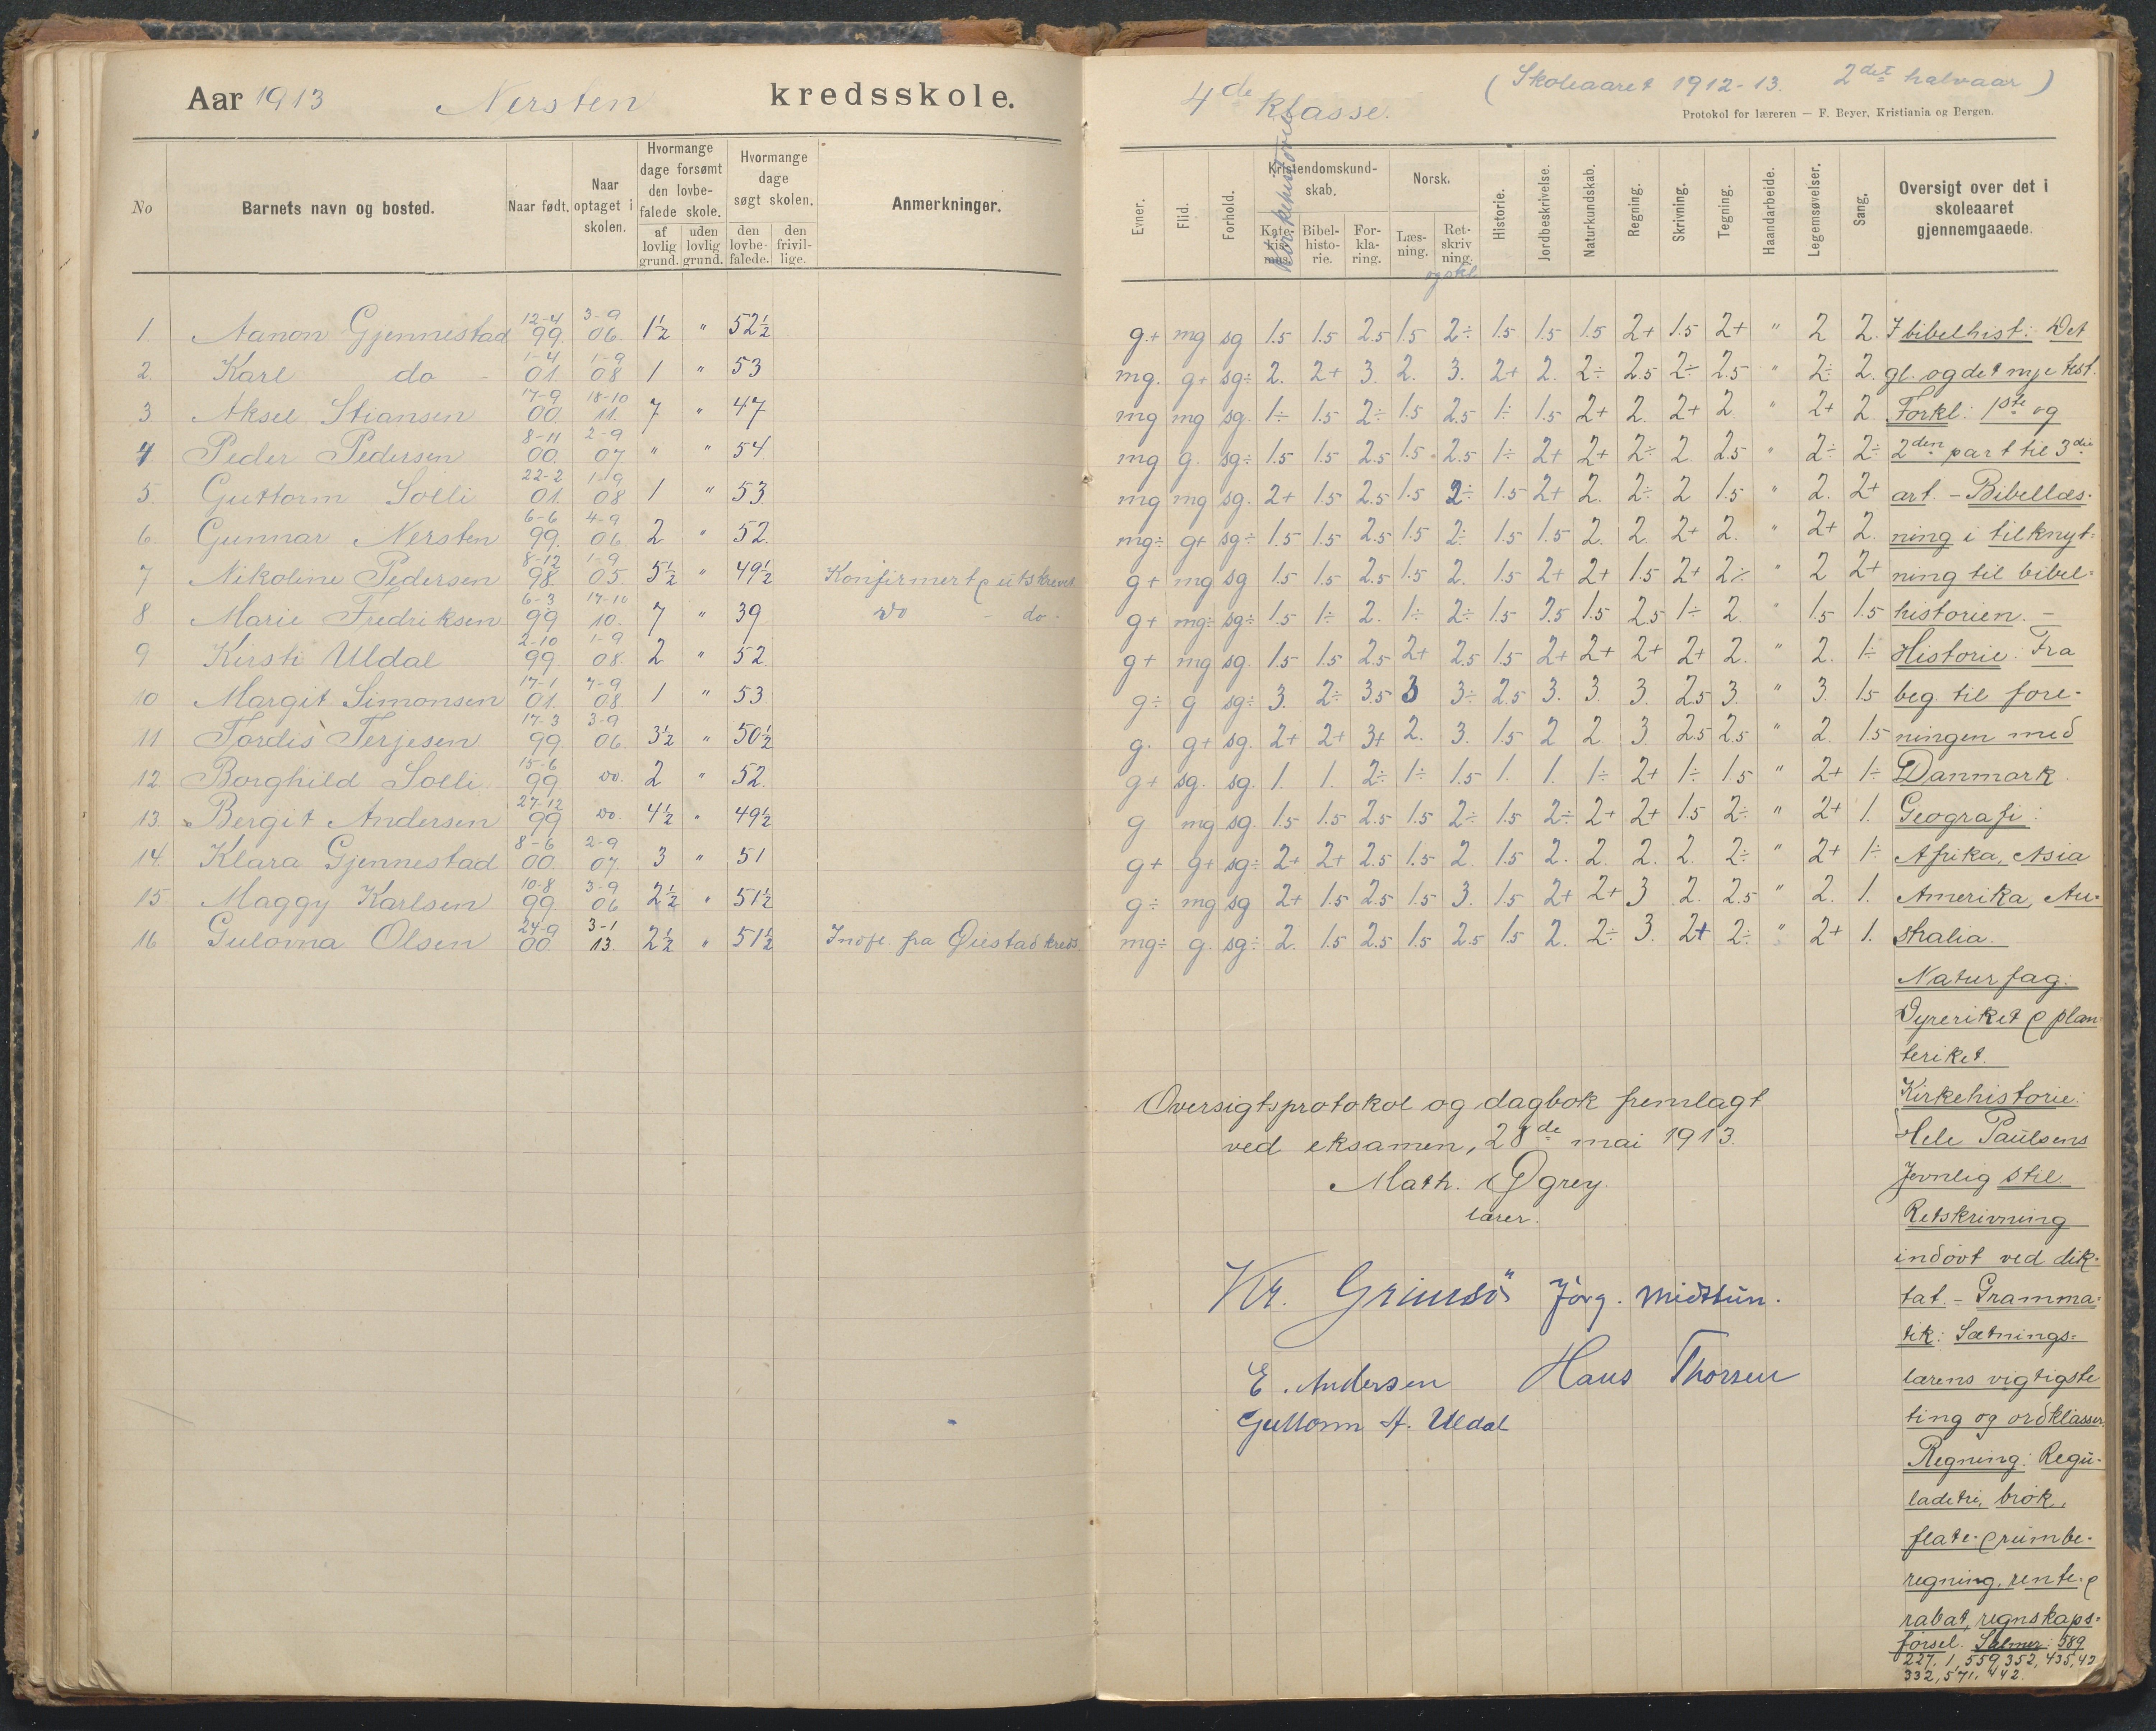 Aar 1913 Nersten kredsskole.
No
Barnets navn og bosted.
Naar født.
Naar optaget i skolen.
Hvormange dage forsømt den lovbefalede skole.
af lovlig grund.
uden lovlig grund.
Hvormange dage søgt skolen.
den lovbefalede.
den frivillige.
Anmerkninger.
1. Aanon Gjennestad 12-4 99. 3-9 06. 1½ " 52½
2. Karl do - 1-4 01. 1-9 08 1 " 53
3 Aksel Stiansen 17-9 00. 18-10 11. 7 " 47
4 Peder Pedersen 8-11 00. 2-9 07 " " 54
5. Guttorm Solli 22-2 01. 1-9 08 1 " 53
6. Gunnar Nersten 6-6 99. 4-9 06 2 " 52.
7 Nikoline Pedersen 8-12 98 1-9 05 5½ " 49½ Konfirmert & utskrevet
8. Marie Fredriksen 6-3 99 17-10 10. 7 " 39 Do - do.
9 Kirsti Uldal 2-10 99 1-9 08. 2 " 52
10 Margit Simonsen 17-1 01. 7-9 08 1 " 53
11 Tordis Terjesen 17-3 99. 3-9 06. 3½ " 50½
12. Borghild Solli 15-6 99 Do. 2 " 52.
13. Bergit Andersen 27-12 99 Do. 4½ " 49½
14. Klara Gjennestad 8-6 00. 2-9 07. 3 " 51
15 Maggy Karlsen 10-8 99 3-9 06 2½ " 51½
16 Guloma Olsen 24-9 00. 3-1 13. 2½ " 51½ Indfl. fra Øiestad kreds
4de klasse. (Skoleaaret 1912-13. 2det halvaar)
Protokol for læreren — F. Beyer, Kristiania og Bergen.
Evner.
Flid.
Forhold.
Kristendomskundskab.
Katekismus.
Kirkehistorie
Bibelhistorie.
Forklaring.
Norsk.
Læsning.
Retskrivning.
og stil
Historie.
Jordbeskrivelse.
Naturkundskab.
Regning.
Skrivning.
Tegning.
Haandarbeide.
Legemsøvelser.
Sang.
Oversigt over det i skoleaaret gjennemgaaede.
g+ mg sg 1.5 1.5 2.5 1.5 2÷ 1.5 1.5 1.5 2+ 1.5 2+ " 2 2.
mg. g+ sg÷ 2. 2+ 3. 2. 3. 2+ 2. 2÷ 2.5 2÷ 2.5 " 2÷ 2.
mg mg sg. 1÷ 1.5 2÷ 1.5 2.5 1÷ 1.5 2+ 2. 2+ 2. " 2+ 2
mg g. sg÷ 1.5 1.5 2.5 1.5 2.5 1÷ 2+ 2+ 2÷ 2 2.5 " 2÷ 2÷
mg mg sg. 2+ 1.5 2.5 1.5 2÷ 1.5 2+ 2. 2÷ 2 1.5 " 2. 2+
mg÷ g+ sg÷ 1.5 1.5 2.5 1.5 2÷ 1.5 1.5 2. 2. 2+ 2. " 2+ 2.
g+ mg sg 1.5 1.5 2.5 1.5 2. 1.5 2+ 2+ 1.5 2+ 2÷ " 2 2+
g+ mg÷ sg÷ 1.5 1÷ 2. 1÷ 2÷ 1.5 2.5 1.5 2.5 1÷ 2 " 1.5 1.5
g+ mg sg. 1.5 1.5 2.5 2+ 2.5 1.5 2+ 2+ 2+ 2+ 2. " 2. 1÷
g÷ g sg÷ 3. 2÷ 3.5 3 3÷ 2.5 3. 3. 3. 2.5 3. " 3. 1.5
g. g+ sg. 2+ 2+ 3+ 2. 3. 1.5 2 2 3. 2.5 2.5 " 2. 1.5
g+ sg. sg. 1. 1. 2÷ 1÷ 1.5 1. 1. 1÷ 2+ 1÷ 1.5 " 2+ 1÷
g mg sg. 1.5 1.5 2.5 1.5 2÷ 1.5 2÷ 2+ 2+ 1.5 2÷ " 2+ 1.
g+ g+ sg÷ 2+ 2+ 2.5 1.5 2. 1.5 2. 2. 2. 2. 2÷ " 2+ 1÷
g÷ mg sg 2+ 1.5 2.5 1.5 3. 1.5 2+ 2+ 3 2. 2.5 " 2. 1.
mg÷ g. sg÷ 2. 1.5 2.5 1.5 2.5 1.5 2. 2÷ 3. 2+ 2÷ " 2+ 1.
I bibelhist: Det
gl. og det nye test.
Forkl: 1ste og
2den part til 3die
art. - Bibellæs-
ning i tilknyt-
ning til bibel-
historien. -
Historie: Fra
beg. til fore-
ningen med
Danmark.
Geografi:
Afrika, Asia
Amerika, Au-
stralia.
Naturfag:
Dyreriket & plan-
teriket.
Kirkehistorie:
Hele Paulsens
Jevnlig stil
Retskrivning
indøvt ved dik-
tat. - Gramma-
tik: Sætnings-
lærens vigtigste
ting og ordklasser
Regning: Regu-
ladetri, brøk,
flate- & rumbe-
regning, rente- &
rabat, regnskaps-
førsel. Salmer: 589
227, 1, 559, 352, 435, 42
332, 571, 442.
Oversigtsprotokol og dagbok fremlagt
ved eksamen, 28de mai 1913.
Math. Øgrey.
lærer.
Kr. Grimsø Jørg. Midttun.
E. Andersen Hans Thorsen
Guttorm A. Uldal